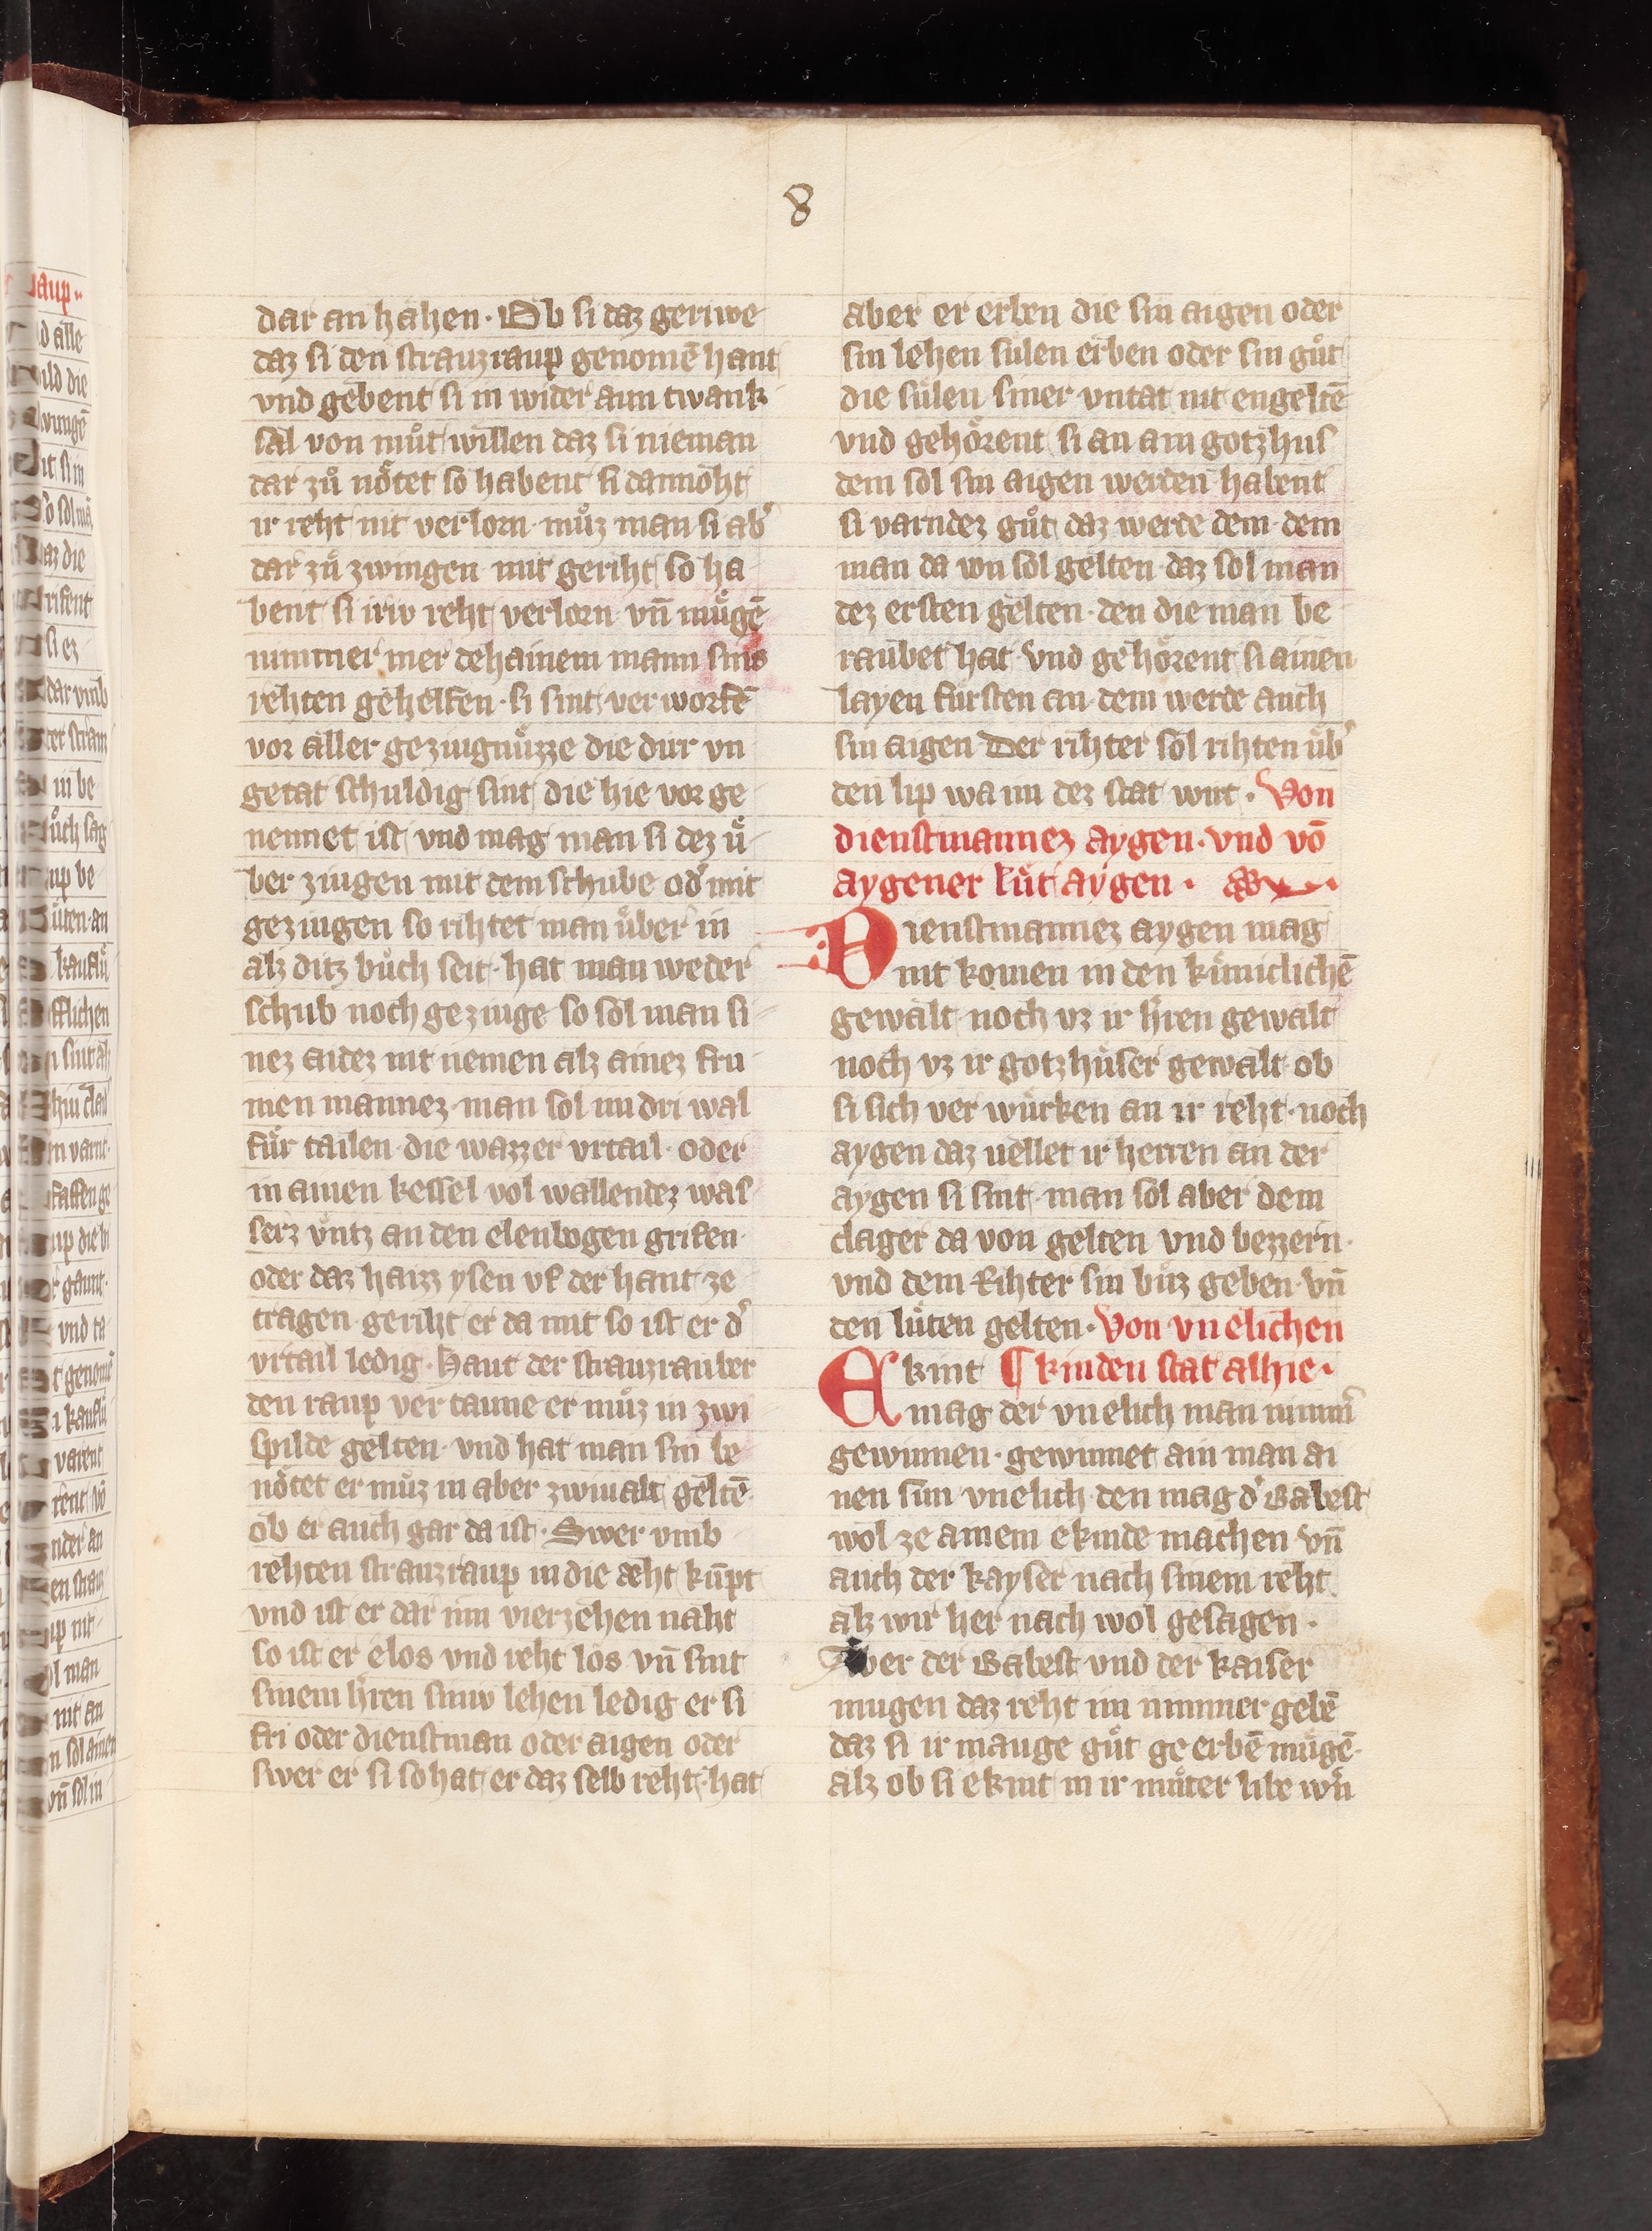 8
dar an hahen · Ob si daz geriwe
daz si den strauzraup genomē hant
vnd gebent si in wider aun twank
sal von muͦt willen daz si nieman
dar zuͦ noͤtet so habent si dannoht
ir reht nit verlorn · muͦz man si ab̾
dar zuͦ zwingen mit geriht so ha
bent si iriv reht verlorn vn̄ muͤgē
nimmer mer dehainem mann sins
rehten gehelfen · si sint verworfē
vor aller geziugnuͤzze die dur vn
getat schuldig sint die hie vor ge
nennet ist vnd mag man si dez uͤ
ber ziugen mit dem schube od̾ mit
geziugen so rihtet man uͤber in
alz ditz buͦch seit · hat man weder
schub noch geziuge so sol man si
nez aidez nit nemen alz ainez fru
men mannez · man sol im dri wal
fuͤr tailen die wazzer vrtail · oder
in ainen kessel vol wallendez was
serz vntz an den elenbogen grifen ·
oder daz haizz ysen vf der hant ze
tragen geriht er da mit so ist er d̾
vrtail ledig · Haut der strauzrauber
den raup ver taune er muͦz in zwi
spilde gelten · vnd hat man sin be
noͤtet er muͦz in aber zwiualt geltē ·
ob er auch gar da ist · Swer vmb
rehten strauzraup in die aeht kūpt
vnd ist er dar inn vierzehen naht
so ist er elos vnd reht los vn̄ sint
sinem h̾ren siniv lehen ledig er si
fri oder dienstman oder aigen oder
swer er si so hat er daz selb reht · hat
aber er erben die sin aigen oder
sin lehen sulen erben oder sin guͦt
die suͤlen siner vntat nit engeltē
vnd gehoͤrent si an ain gotzhus
dem sol sin aigen werden habent
si varndez guͦt daz werde dem dem
man da von sol gelten daz sol man
dez ersten gelten · den die man be
raubet hat vnd gehoͤrent si ainen
layen fuͤrsten an dem werde auch
sin aigen Der rihter sol rihten uͤb̾
den lip wa im dez stat wirt · Von
dienstmannez aygen · vnd vō
aygener luͤt aygen ·
Dienstmannez aygen mag
nit komen in den kuͤniclichē
gewalt noch vz ir h̾ren gewalt
noch vz ir gotzhuͤser gewalt · ob
si sich ver wuͤrken an ir reht · noch
aygen daz uellet ir herren an der
aygen si sint · man sol aber dem
clager da von gelten vnd bezzern ·
vnd dem Rihter sin buͦz geben · vn̄
den luͤten gelten · Von vnelichen
Ekint ¶ kinden stat alhie ·
mag der vnelich man nimm̾
gewinnen · gewinnet ain man ai
nen sun vnelich den mag d̾ Babest
wol ze ainem ekinde machen vn̄
auch der kayser nach sinem reht
alz wir her nach wol gesagen ·
Aber der Babest vnd der kaiser
mugen daz reht im nimmer gebē
daz si ir mauge guͦt ge erbē muͤgē ·
alz ob si ekint in ir muͦter libe w̾n